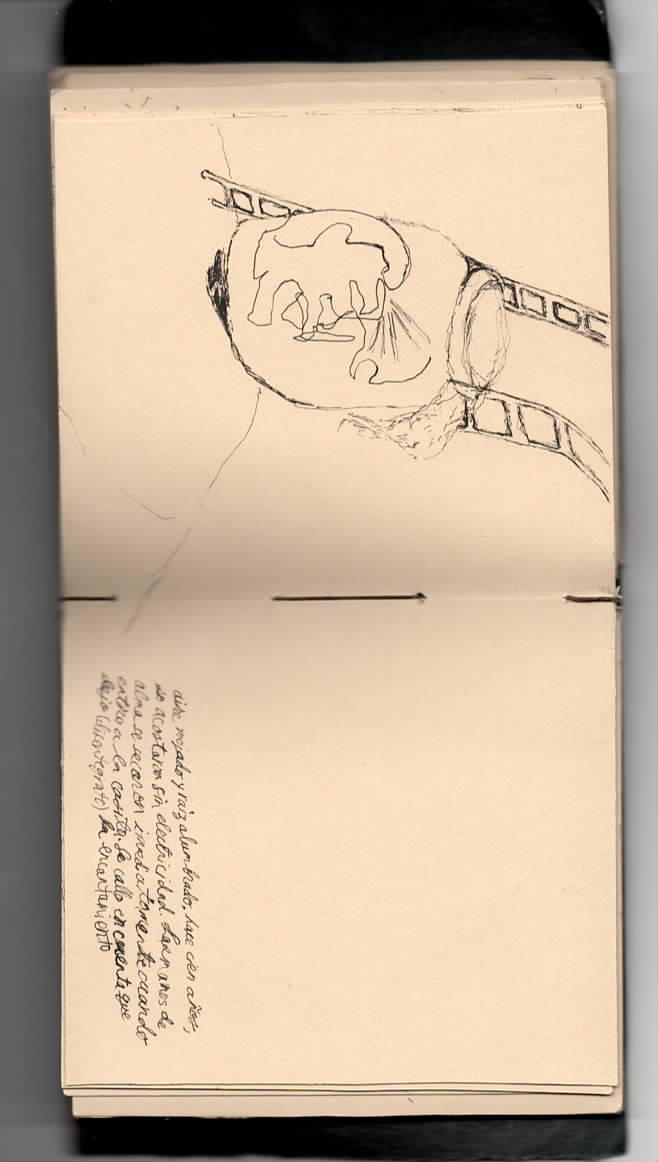 aire mojado y raiz alumbrado. hace cien años,
se acostaron sin electricidad. Las manos de
alma se secaron imediatamente cuando
entro a la casita. Se callo en cuenta que
dejo (disentegrate) la encantamiento